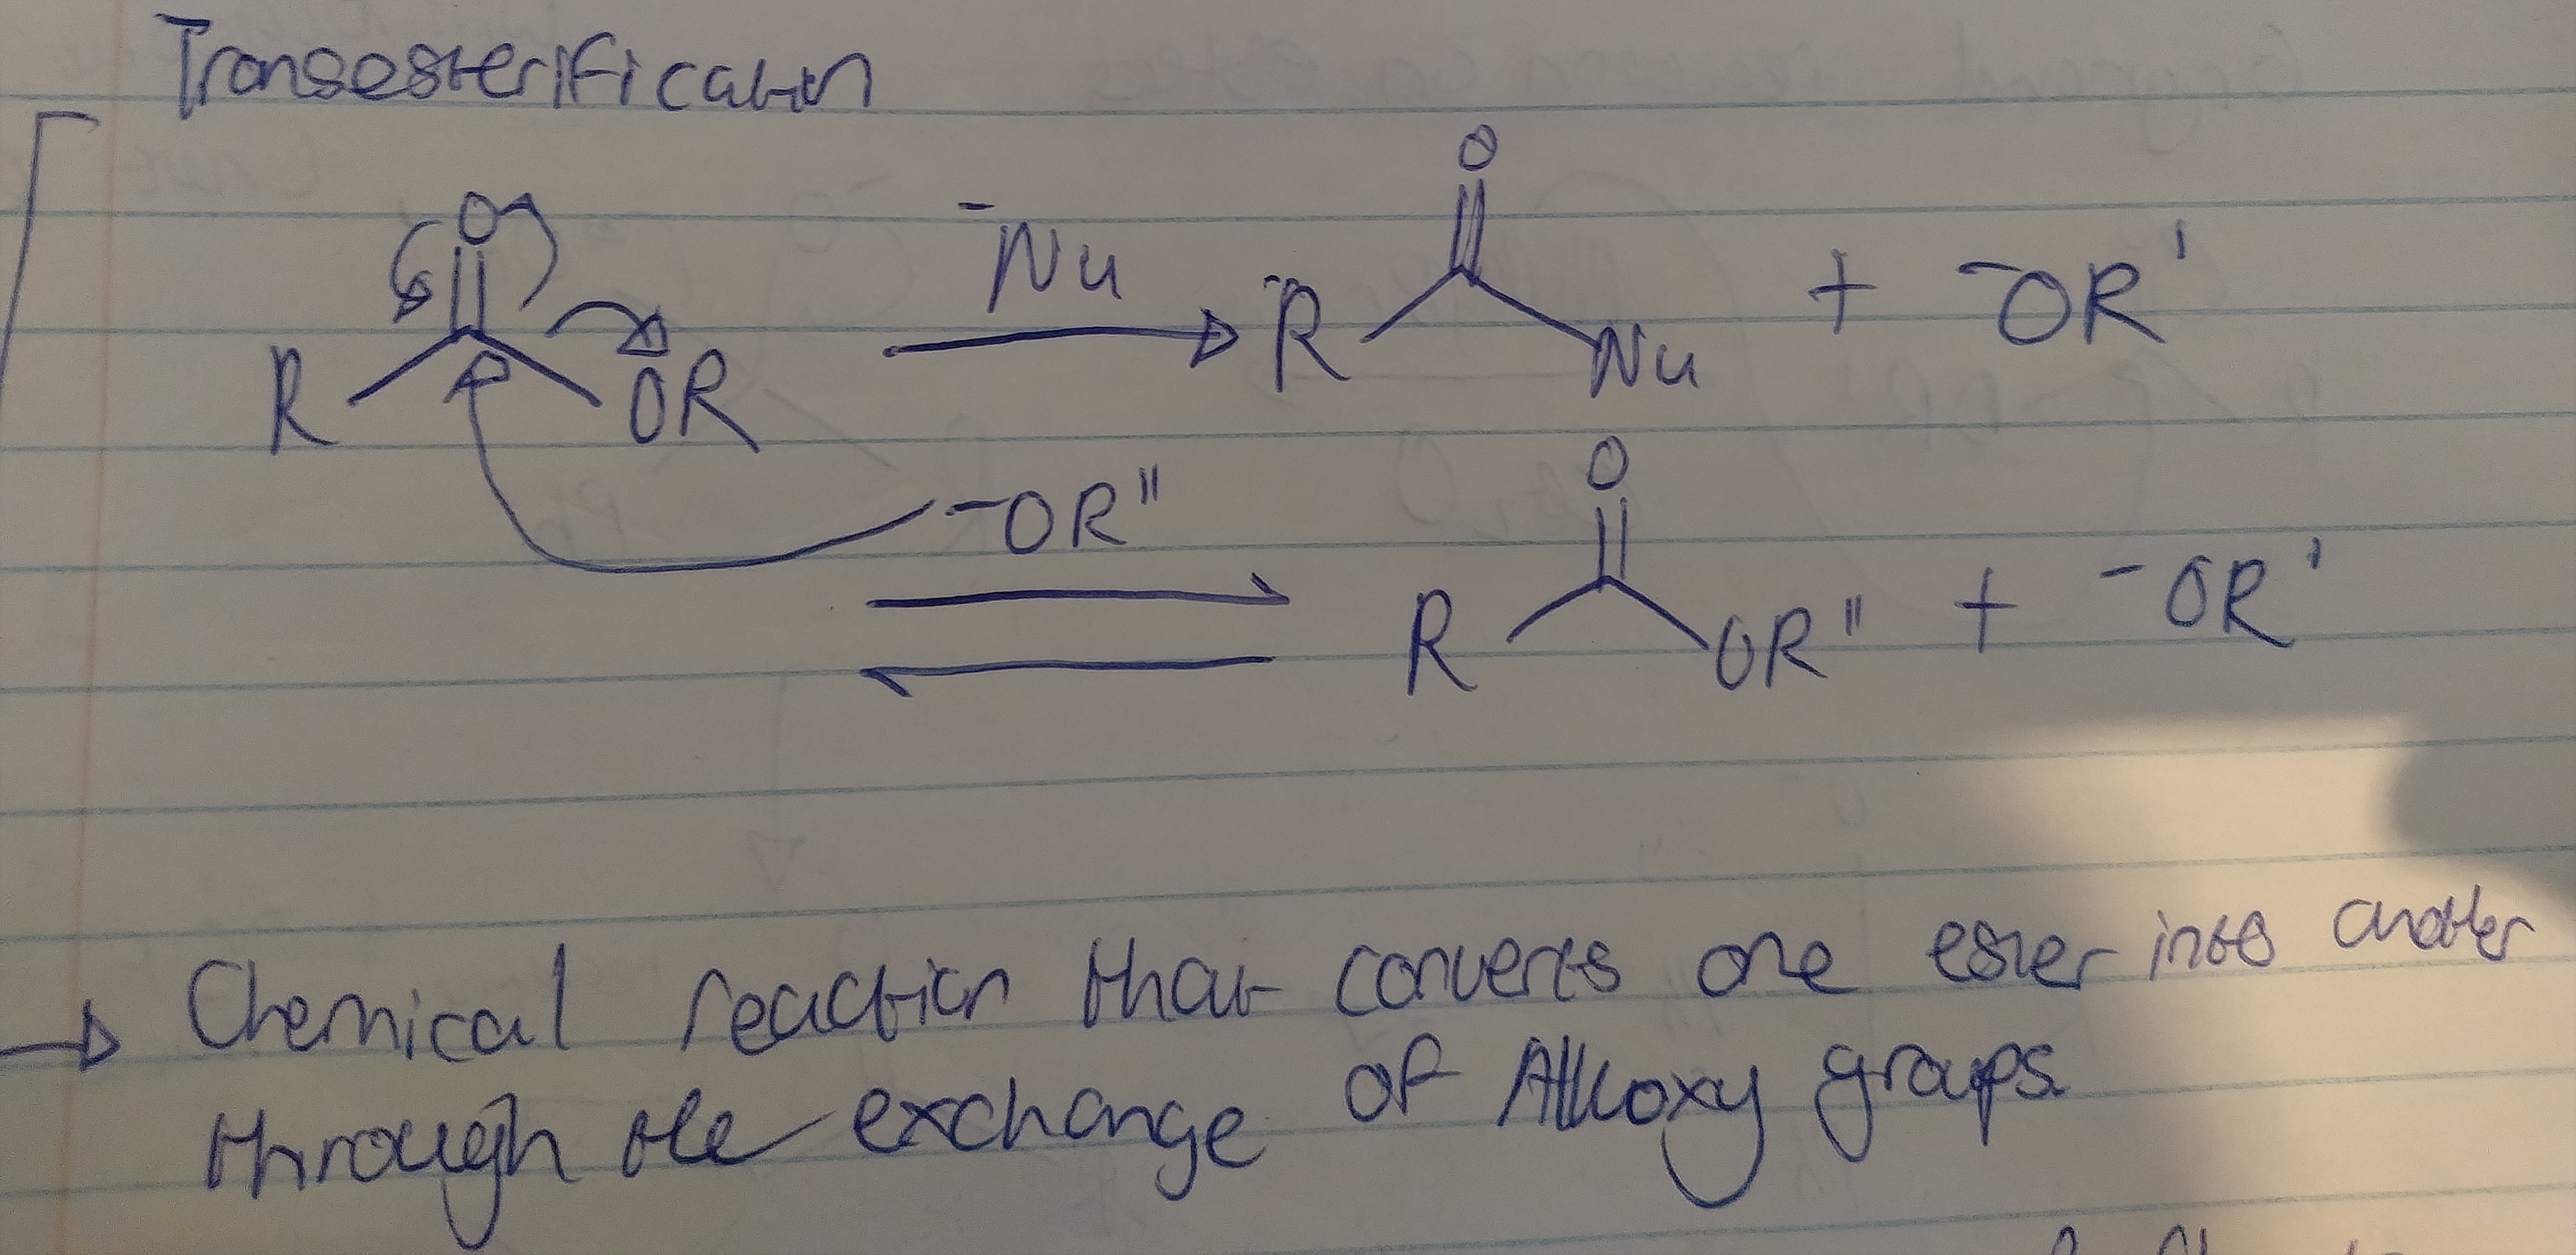 Transesterification
O
O
-Nu
R
OR
R
Nu
+ -OR'
-OR"
O
R
OR" + -OR'
Chemical reaction that converts one ester into another
through the exchange of Alkoxy groups.